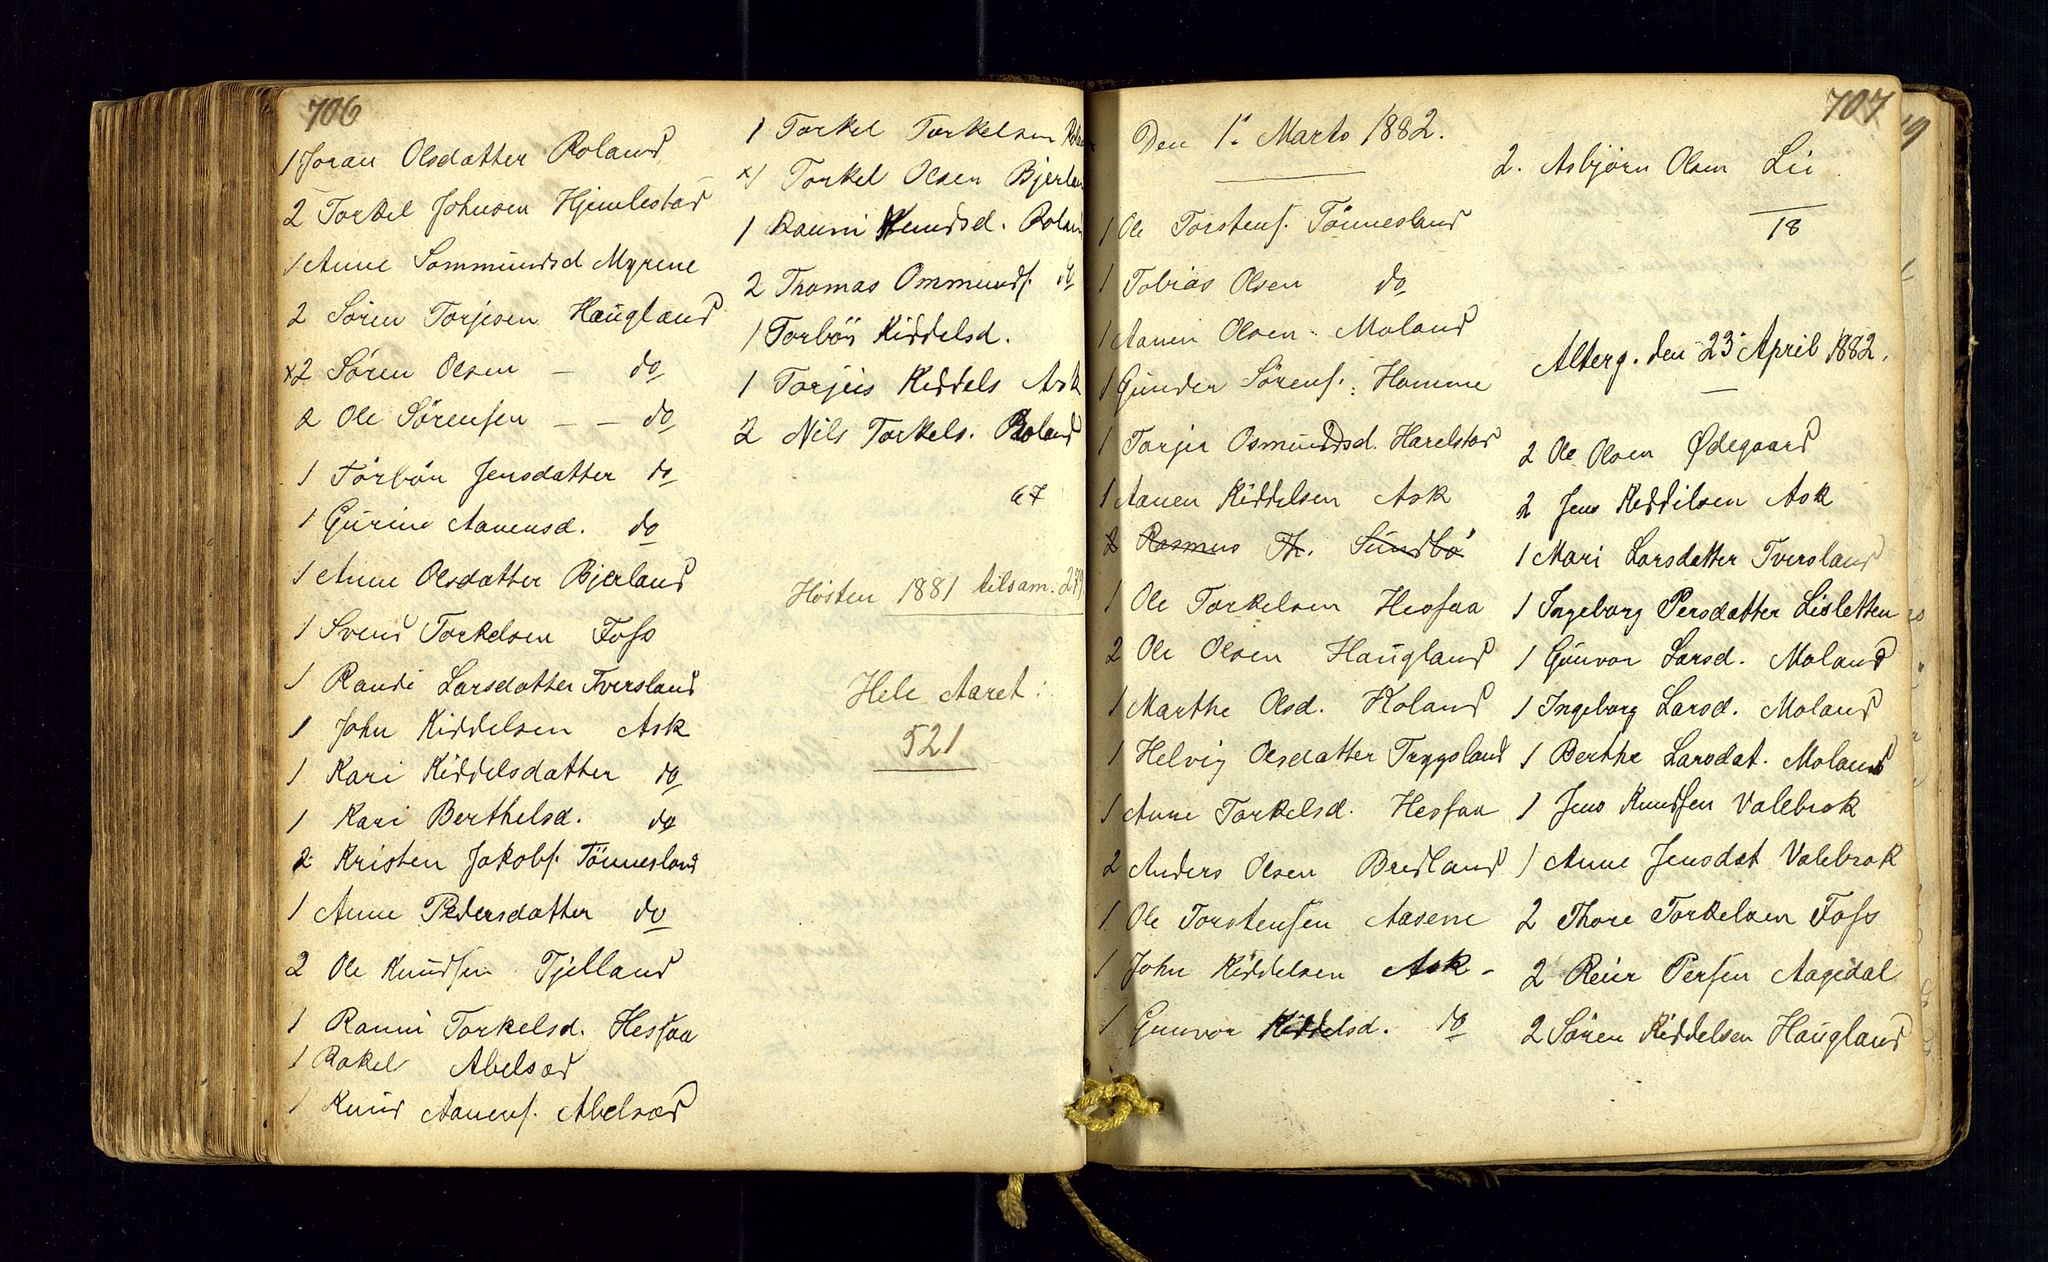 706
1 Joran Olsdatter Roland
2 Torkel Johnsen Hjemlestad
1 Anne Sommundsd Myrene
2 Sören Torjesen Haugland
x2 Sören Olsen — do
2 Ole Sörensen — — do
1 Törbön Jensdatter do
1 Gurine Aanensd. do
1 Anne Olsdatter Bjerland
1 Svend Torkelsen Foss
1 Randi Larsdatter Tversland
1 John Kiddelsen Ask
1 Kari Kiddelsdatter do
1 Kari Berthelsd. do
2 Kristen Jakobs. Tönnesland
1 Anne Pedersdatter do
2 Ole Knudsen Tjelland
1 Ranni Torkelsd. Hesfaa
1 Rakel Abelsæd
1 Knud Aanens. Abelsæd
1 Torkel Torkelsen
x1 Torkel Olsen Bjerlan
1 Ranni Knudsd. Rolan
2 Thomas Ommunds. do
1 Torbör Kiddelsd.
1 Torjus Kiddels Ask
2 Nils Torkels. Roland
67
Hösten 1881 tilsam.
Hele Aaret:
521
707
Den 1. Marts 1882.
1 Ole Torstens. Tönnesland
1 Tobias Olsen do
1 Aanen Olsen Moland
1 Gunder Sörens. Homme
1 Torjer Osmundsd. Harelstad
1 Aanen Kiddelsen Ask
2 Rasmus Th. Sundbö
1 Ole Torkelsen Hesfaa
2 Ole Olsen Haugland
1 Marthe Olsd. Holand
1 Helvig Olsdatter Trygsland
1 Anne Torkelsd. Hesfaa
2 Anders Olsen Bredland
1 Ole Torstensen Aasene
1 John Kiddelsen Ask -
1 Gunvor Kiddelsd. do
2. Asbjörn Olsen Lii
18
Alterg. den 23 April 1882.
2 Ole Olsen Ødegaard
2 Jens Kiddilsen Ask
1 Mari Larsdatter Tversland
1 Ingeborg Persdatter Lisletten
1 Gunvor Larsd. Moland
1 Ingeborg Larsd. Moland
1 Berthe Larsdat. Moland
1 Jens Knudsen Valebrok
1 Anne Jensdat Valebrok
2 Thore Torkelsen Foss
2 Reier Persen Aagedal
2 Sören Kiddelsen Haugland